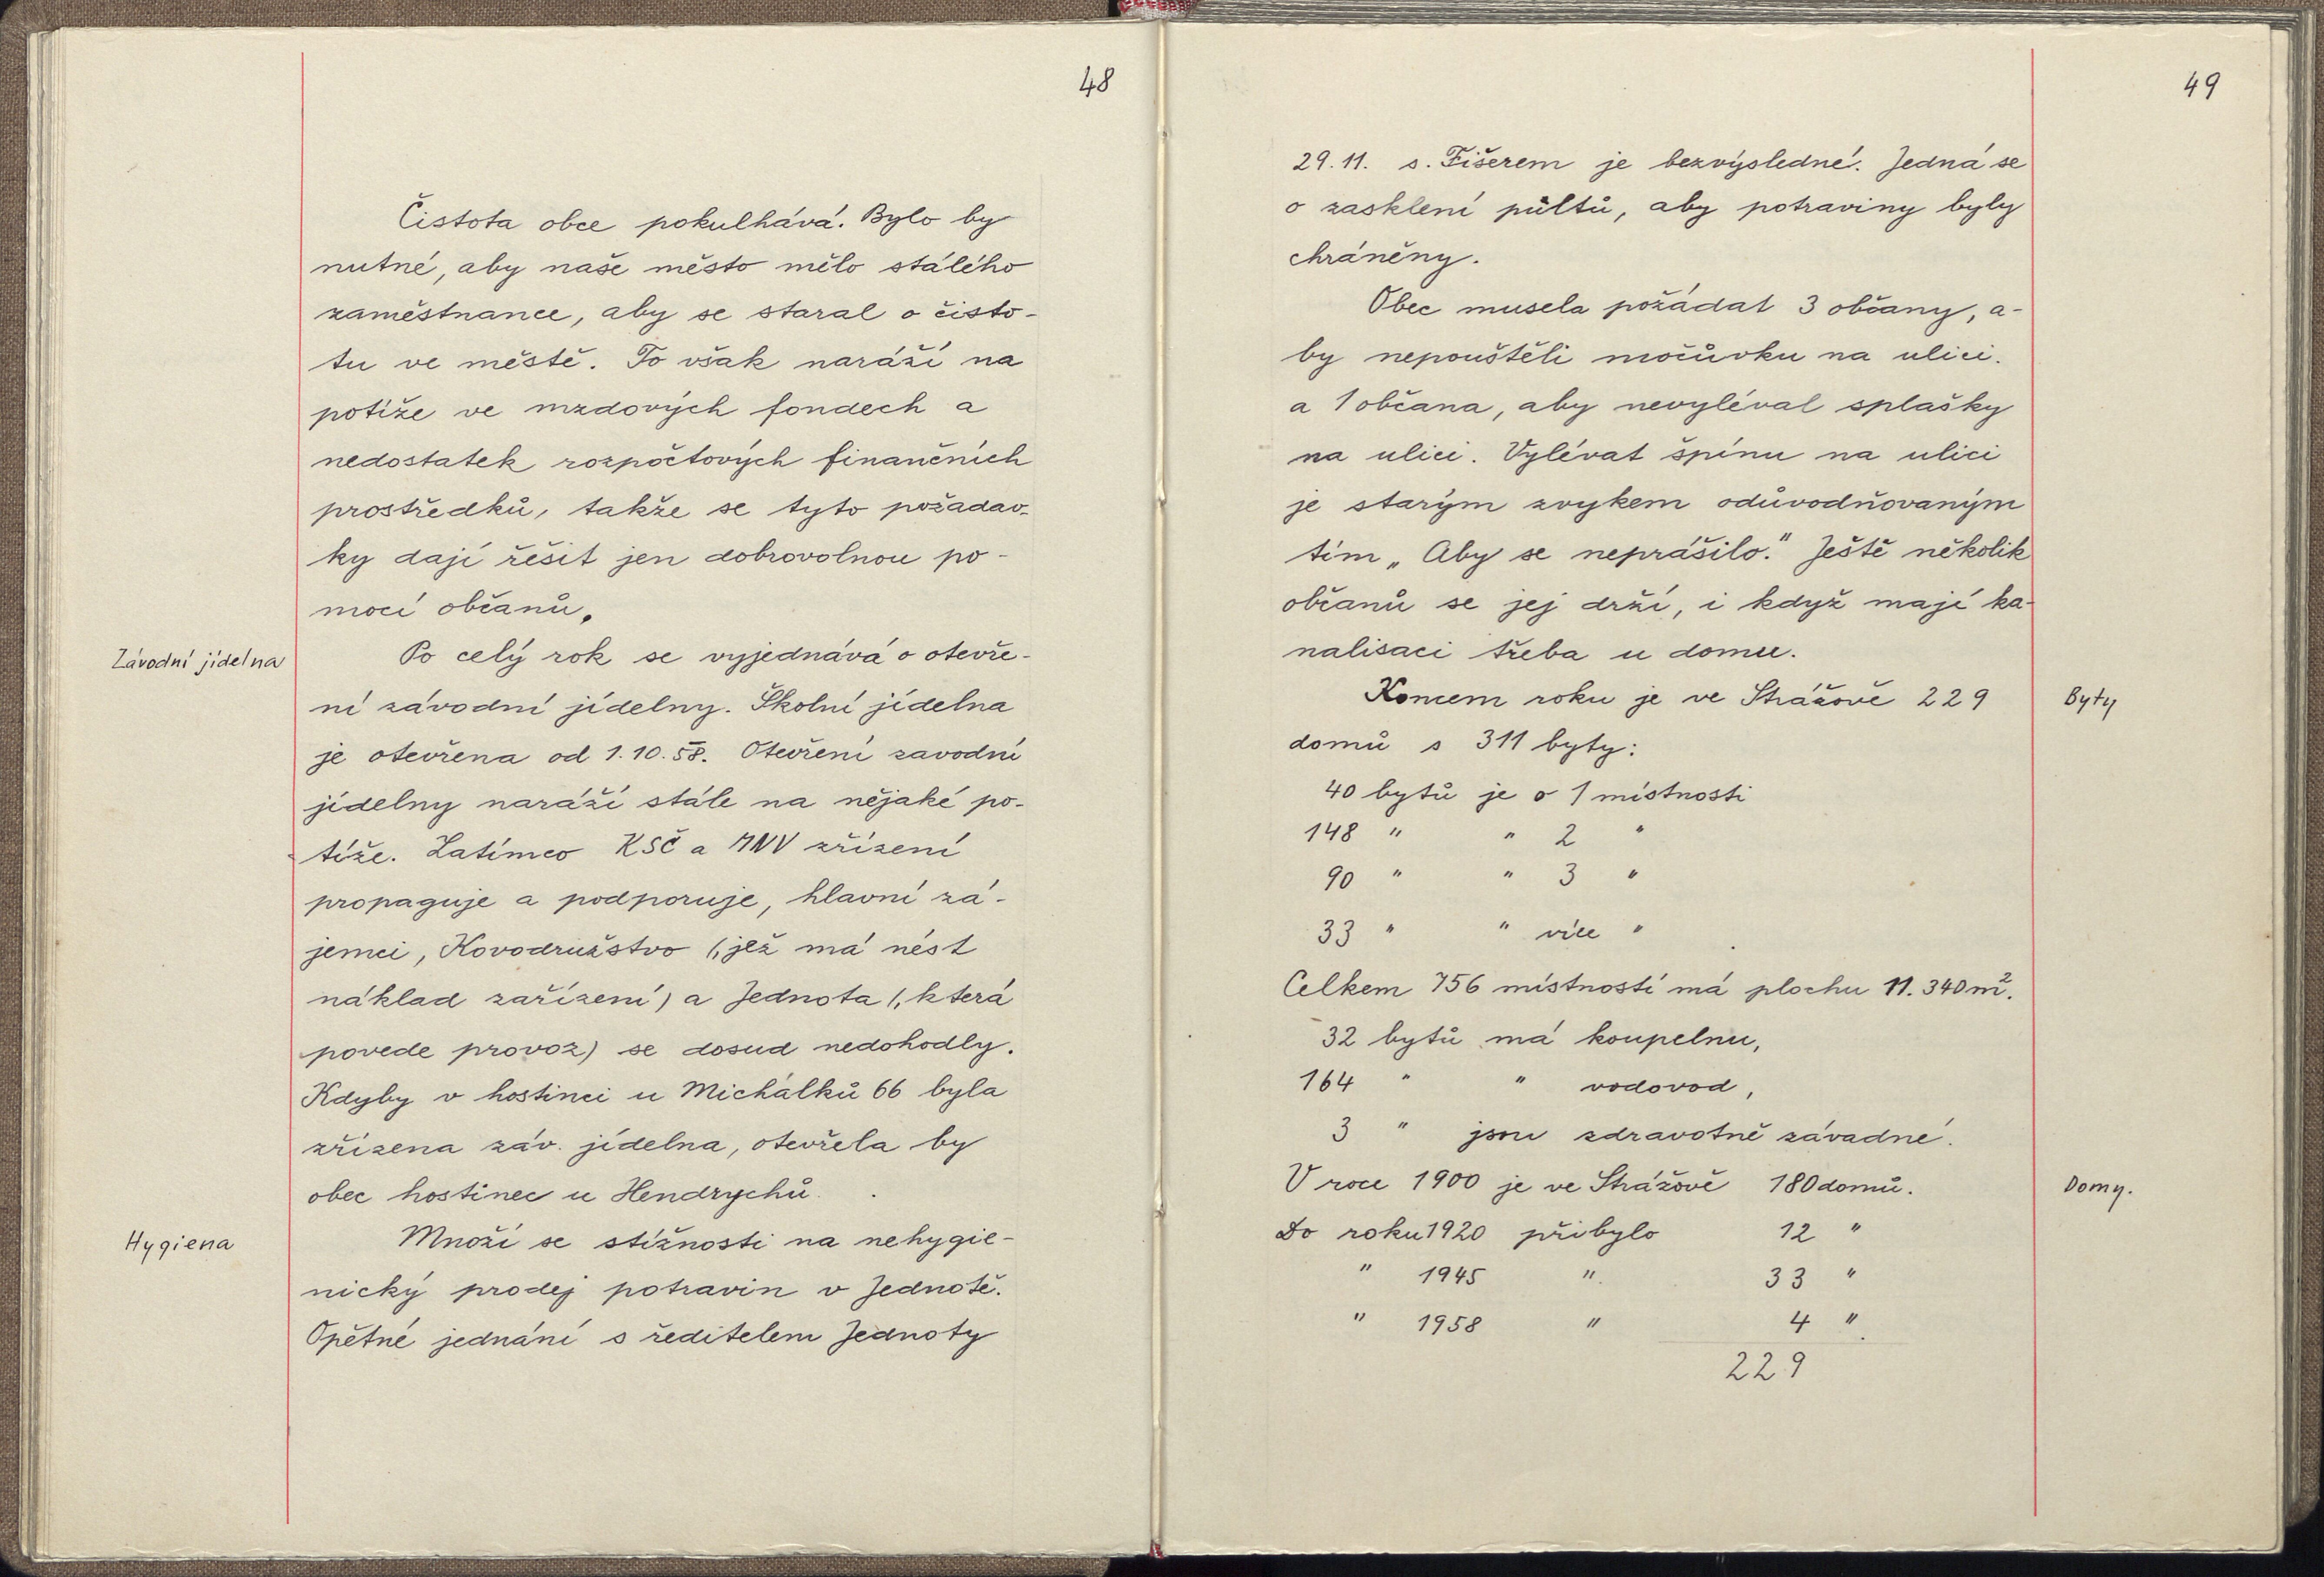 48
Čistota obce pokulhává. Bylo by
nutné, aby naše město mělo stálého
zaměstnance, aby se staral o čisto-
tu ve městě. To však naráží na
potíže ve mzdových fondech a
nedostatek rozpočtových finančních
prostředků, takže se tyto požadav-
ky dají řešit jen dobrovolnou po-
mocí občanů.
Závodní jídelna
Po celý rok se vyjednává o otevře-
ní závodní jídelny. Školní jídelna
je otevřena od 1.10.58. Otevření zavodní
jídelny naráží stále na nějaké po-
tíže. Zatímco KSČ a MNV zřízení
propaguje a podporuje, hlavní zá-
jemci, Kovodružstvo (, jež má nést
náklad zařízení) a Jednota (, která
povede provoz) se dosud nedohodly.
Kdyby v hostinci u Michálků 66 byla
zřízena záv. jídelna, otevřela by
obec hostinec u Hendrychů.
Hygiena
Množí se stížnosti na nehygie-
nický prodej potravin v Jednotě.
Opětné jednání s ředitelem Jednoty
49
29.11. s. Fišerem je bezvýsledné. Jedná se
o zasklení půltů, aby potraviny byly
chráněny.
Obec musela požádat 3 občany, a-
by nepouštěli močůvku na ulici.
a 1 občana, aby nevyléval splašky
na ulici. Vylévat špínu na ulici
je starým zvykem odůvodňovaným
tím „Aby se neprášilo." Ještě několik
občanů se jej drží, i když mají ka-
nalisaci třeba u domu.
Koncem roku je ve Strážově 229
Byty
domů s 311 byty:
40 bytů je o 1 místnosti
148 " " 2 "
90 " " 3 "
33 " " více "
Celkem 756 místností má plochu 11.340 m².
32 bytů má koupelnu,
164 " " vodovod,
3 " jsou zdravotně závadné.
V roce 1900 je ve Strážově 180 domů.
Domy.
Do roku 1920 přibylo 12 "
" 1945 " 33 "
" 1958 " 4 "
229